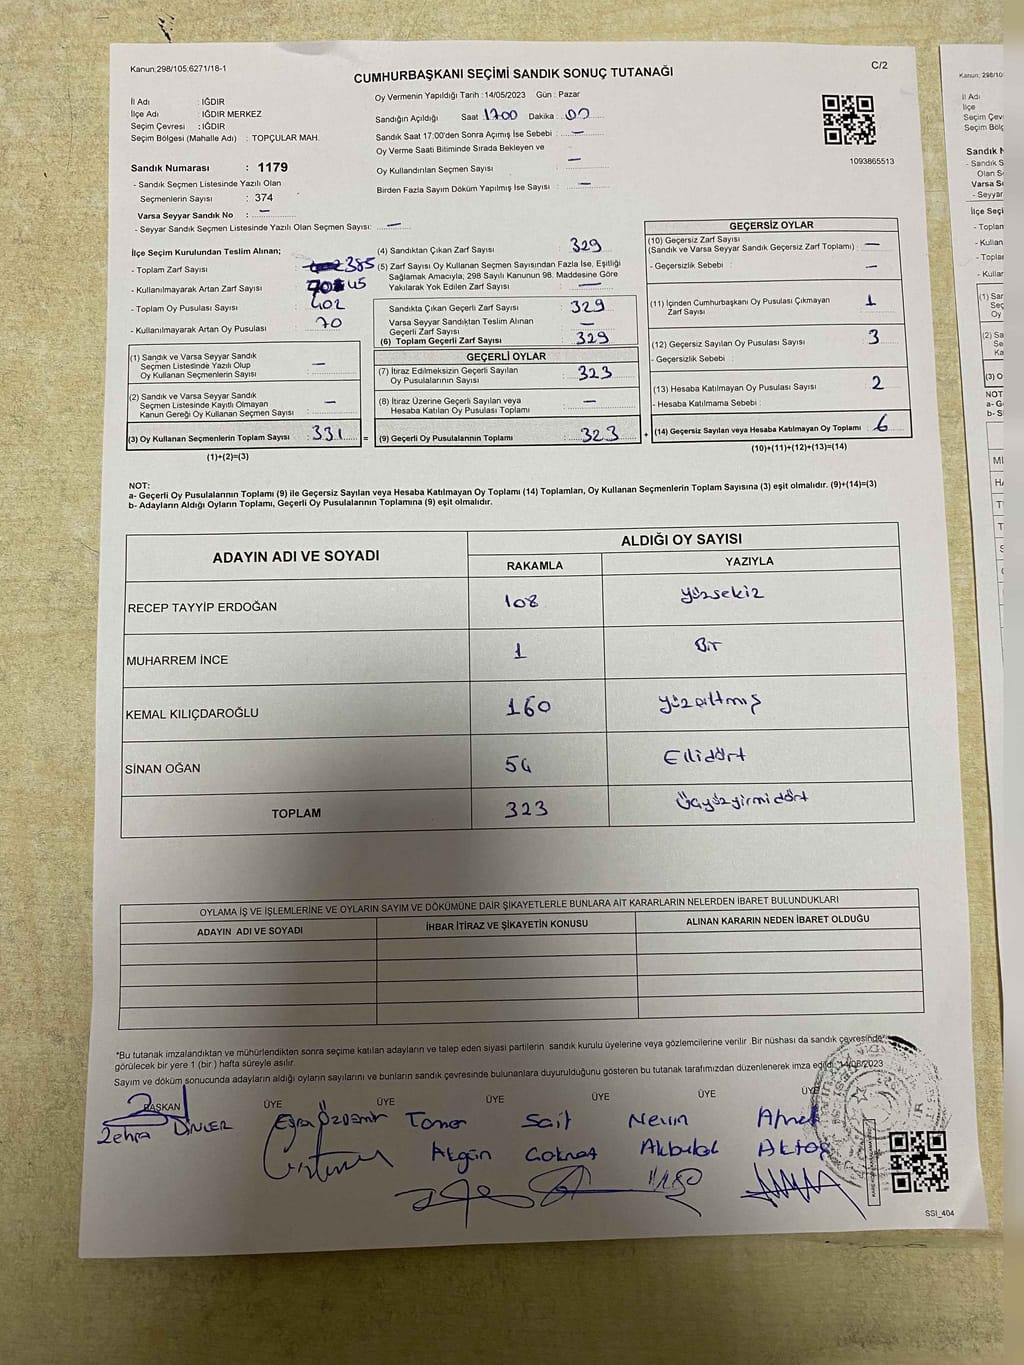 Kanun;298/105;6271/18-1
C/2
CUMHURBAŞKANI SEÇİMİ SANDIK SONUÇ TUTANAĞI
İl Adı : IĞDIR
İlçe Adı : IĞDIR MERKEZ
Seçim Çevresi : IĞDIR
Seçim Bölgesi (Mahalle Adı) : TOPÇULAR MAH.
Sandık Numarası : 1179
- Sandık Seçmen Listesinde Yazılı Olan
Seçmenlerin Sayısı : 374
Varsa Seyyar Sandık No : —
- Seyyar Sandık Seçmen Listesinde Yazılı Olan Seçmen Sayısı: —
Oy Vermenin Yapıldığı Tarih : 14/05/2023 Gün : Pazar
Sandığın Açıldığı Saat 1700 Dakika : 00
Sandık Saat 17:00'den Sonra Açımış İse Sebebi : —
Oy Verme Saati Bitiminde Sırada Bekleyen ve
Oy Kullandırılan Seçmen Sayısı : —
Birden Fazla Sayım Döküm Yapılmış İse Sayısı : —
1093865513
İlçe Seçim Kurulundan Teslim Alınan;
- Toplam Zarf Sayısı 385
- Kullanılmayarak Artan Zarf Sayısı 45
- Toplam Oy Pusulası Sayısı 402
- Kullanılmayarak Artan Oy Pusulası 70
(1) Sandık ve Varsa Seyyar Sandık
Seçmen Listesinde Yazılı Olup
Oy Kullanan Seçmenlerin Sayısı —
(2) Sandık ve Varsa Seyyar Sandık
Seçmen Listesinde Kayıtlı Olmayan
Kanun Gereği Oy Kullanan Seçmen Sayısı : —
(3) Oy Kullanan Seçmenlerin Toplam Sayısı : 331 =
(1)+(2)=(3)
(4) Sandıktan Çıkan Zarf Sayısı 329
(5) Zarf Sayısı Oy Kullanan Seçmen Sayısından Fazla İse, Eşitliği
Sağlamak Amacıyla, 298 Sayılı Kanunun 98. Maddesine Göre
Yakılarak Yok Edilen Zarf Sayısı : —
Sandıkta Çıkan Geçerli Zarf Sayısı : 329
Varsa Seyyar Sandıktan Teslim Alınan
Geçerli Zarf Sayısı : —
(6) Toplam Geçerli Zarf Sayısı : 329
GEÇERLİ OYLAR
(7) İtiraz Edilmeksizin Geçerli Sayılan
Oy Pusulalarının Sayısı : 323
(8) İtiraz Üzerine Geçerli Sayılan veya
Hesaba Katılan Oy Pusulası Toplamı : —
(9) Geçerli Oy Pusulalarının Toplamı : 323 +
GEÇERSİZ OYLAR
(10) Geçersiz Zarf Sayısı
(Sandık ve Varsa Seyyar Sandık Geçersiz Zarf Toplamı) : —
- Geçersizlik Sebebi : —
(11) İçinden Cumhurbaşkanı Oy Pusulası Çıkmayan
Zarf Sayısı : 1
(12) Geçersiz Sayılan Oy Pusulası Sayısı : 3
- Geçersizlik Sebebi :
(13) Hesaba Katılmayan Oy Pusulası Sayısı : 2
- Hesaba Katılmama Sebebi :
(14) Geçersiz Sayılan veya Hesaba Katılmayan Oy Toplamı : 6
(10)+(11)+(12)+(13)=(14)
NOT:
a- Geçerli Oy Pusulalarının Toplamı (9) ile Geçersiz Sayılan veya Hesaba Katılmayan Oy Toplamı (14) Toplamları, Oy Kullanan Seçmenlerin Toplam Sayısına (3) eşit olmalıdır. (9)+(14)=(3)
b- Adayların Aldığı Oyların Toplamı, Geçerli Oy Pusulalarının Toplamına (9) eşit olmalıdır.
ADAYIN ADI VE SOYADI
ALDIĞI OY SAYISI
RAKAMLA YAZIYLA
RECEP TAYYİP ERDOĞAN 108 yüzsekiz
MUHARREM İNCE 1 Bir
KEMAL KILIÇDAROĞLU 160 yüzaltmış
SİNAN OĞAN 54 Ellidört
TOPLAM 323 Üçyüzyirmidört
OYLAMA İŞ VE İŞLEMLERİNE VE OYLARIN SAYIM VE DÖKÜMÜNE DAİR ŞİKAYETLERLE BUNLARA AİT KARARLARIN NELERDEN İBARET BULUNDUKLARI
ADAYIN ADI VE SOYADI İHBAR İTİRAZ VE ŞİKAYETİN KONUSU ALINAN KARARIN NEDEN İBARET OLDUĞU
*Bu tutanak imzalandıktan ve mühürlendikten sonra seçime katılan adayların ve talep eden siyasi partilerin sandık kurulu üyelerine veya gözlemcilerine verilir .Bir nüshası da sandık çevresinde
görülecek bir yere 1 (bir ) hafta süreyle asılır.
Sayım ve döküm sonucunda adayların aldığı oyların sayılarını ve bunların sandık çevresinde bulunanlara duyurulduğunu gösteren bu tutanak tarafımızdan düzenlenerek imza edildi.
BAŞKAN ÜYE ÜYE ÜYE ÜYE ÜYE ÜYE
Zehra DİNLER Esra Özdemir Tamer Akgün Sait Göknaş Nevin Akbulak Ahmet Aktaş
SSI_404